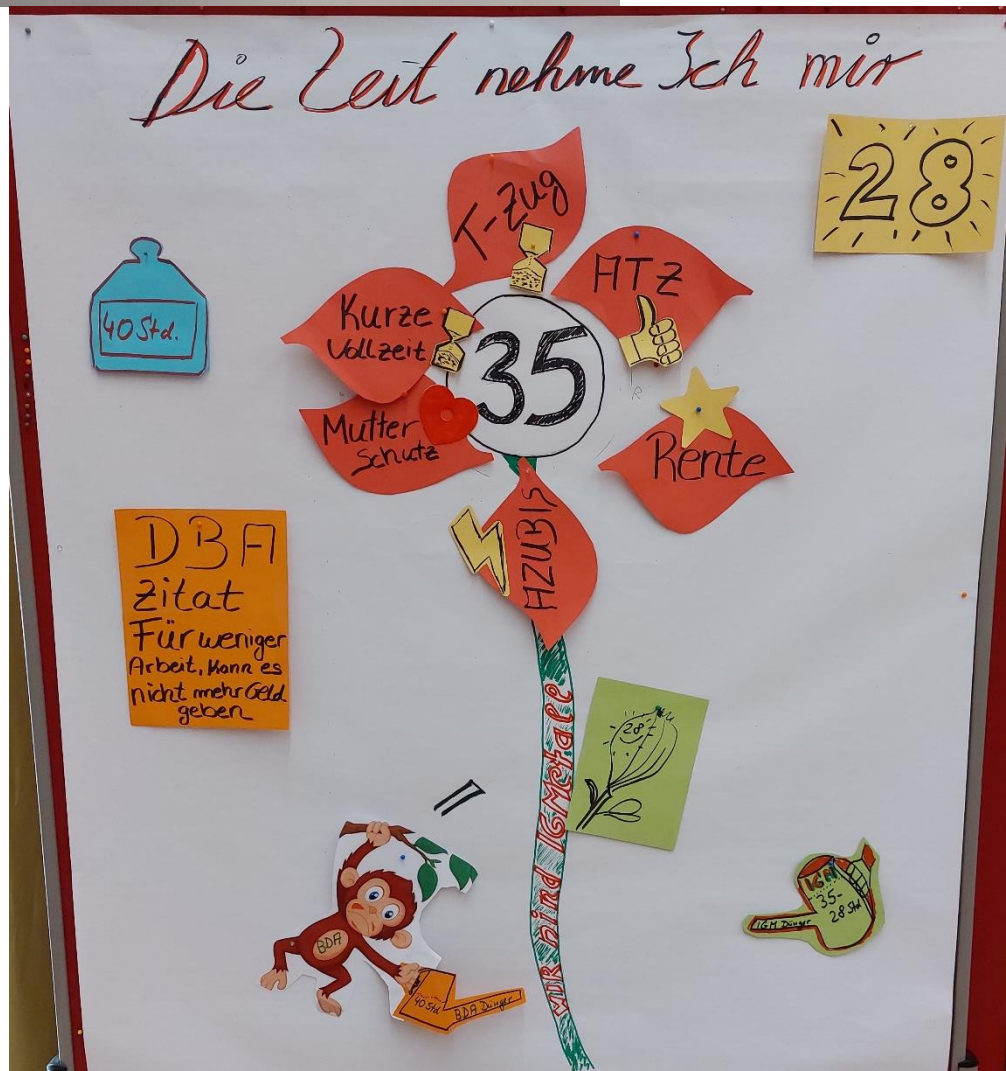 Die Zeit nehme Ich mir
28
T-Zug
ATZ
40 Std.
Kurze
Vollzeit
35
Mutter
schutz
Rente
AZUBIS
DBA
Zitat
Für weniger
Arbeit, Kann es
nicht mehr Geld
geben
WIR sind IGMetall
28
BDA
40 Std
BDA Dünger
IGM
35-
28 Std
IGM Dünger